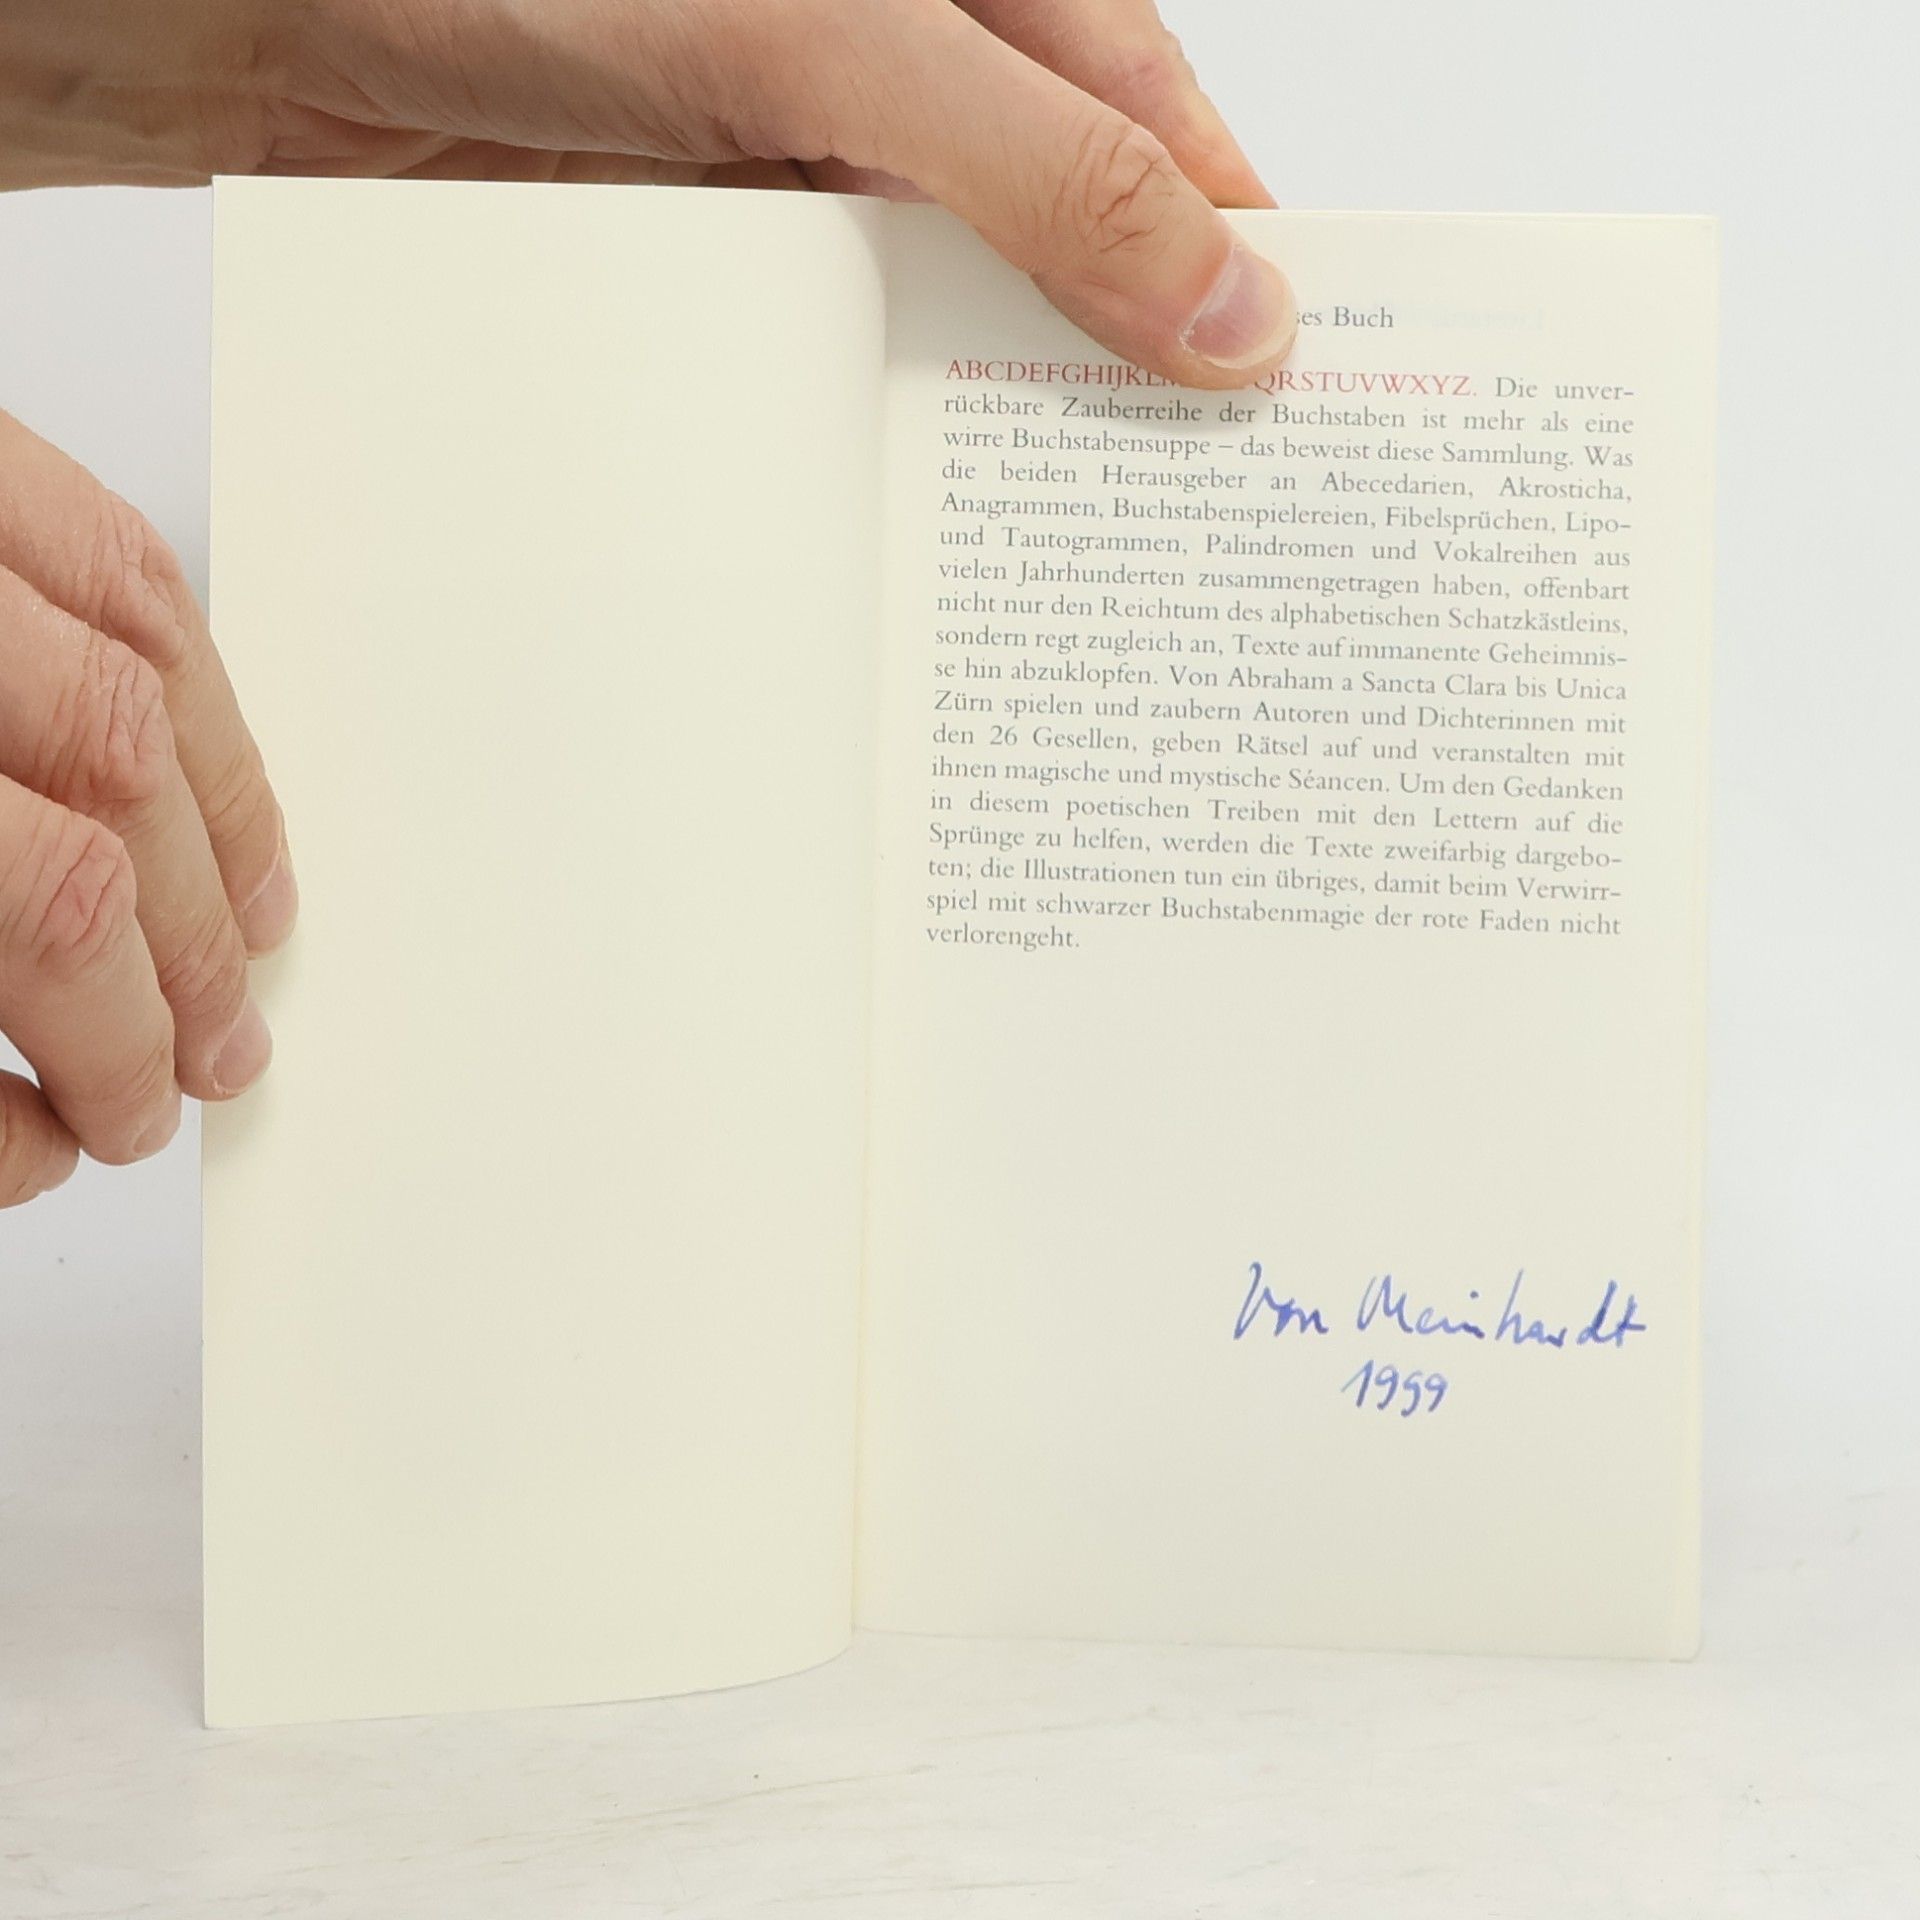 Buch
ABCDEFGHIJKL QRSTUVWXYZ. Die unver-
rückbare Zauberreihe der Buchstaben ist mehr als eine
wirre Buchstabensuppe – das beweist diese Sammlung. Was
die beiden Herausgeber an Abecedarien, Akrosticha,
Anagrammen, Buchstabenspielereien, Fibelsprüchen, Lipo-
und Tautogrammen, Palindromen und Vokalreihen aus
vielen Jahrhunderten zusammengetragen haben, offenbart
nicht nur den Reichtum des alphabetischen Schatzkästleins,
sondern regt zugleich an, Texte auf immanente Geheimnis-
se hin abzuklopfen. Von Abraham a Sancta Clara bis Unica
Zürn spielen und zaubern Autoren und Dichterinnen mit
den 26 Gesellen, geben Rätsel auf und veranstalten mit
ihnen magische und mystische Séancen. Um den Gedanken
in diesem poetischen Treiben mit den Lettern auf die
Sprünge zu helfen, werden die Texte zweifarbig dargebo-
ten; die Illustrationen tun ein übriges, damit beim Verwirr-
spiel mit schwarzer Buchstabenmagie der rote Faden nicht
verlorengeht.
Von Meinhardt
1999